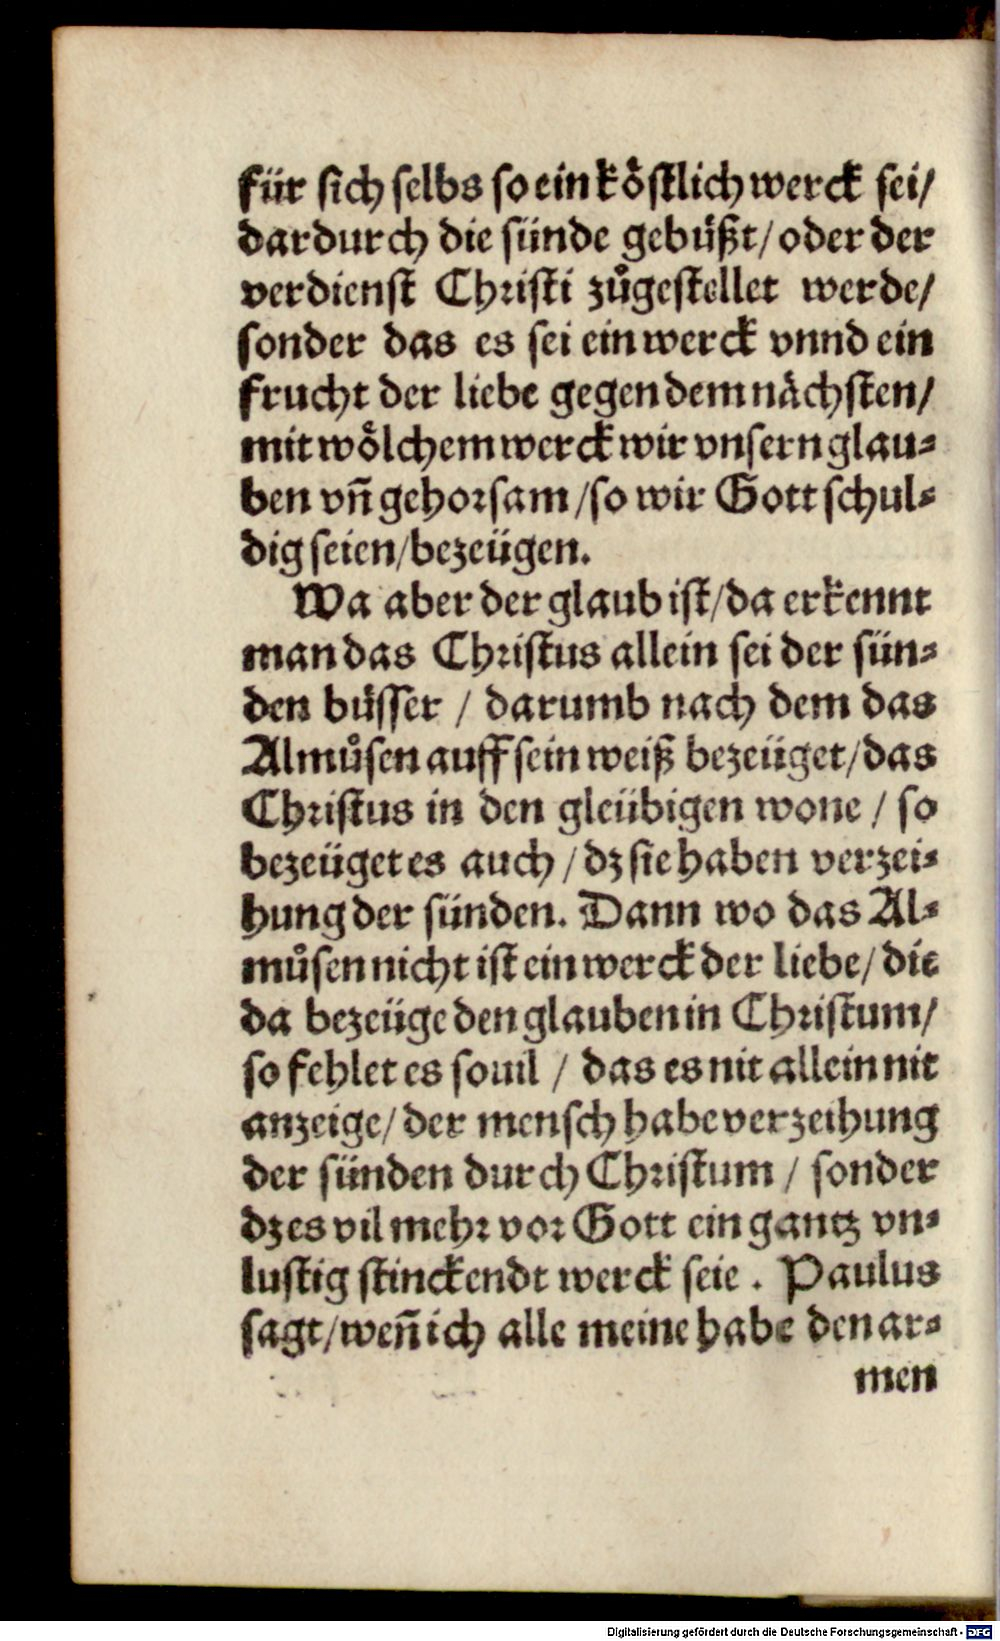 für sich selbs so ein koͤstlich werck sei/
dardurch die sünde gebuͤßt/ oder der
verdienst Christi zuͦgestellet werde/
sonder das es sei ein werck vnnd ein
frucht der liebe gegen dem naͤchsten/
mit woͤlchem werck wir vnsern glau⸗
ben vñ gehorsam/ so wir Gott schul⸗
dig seien/ bezeügen.
Wa aber der glaub ist/ da erkennt
man das Christus allein sei der sün⸗
den buͤsser / darumb nach dem das
Almuͦsen auff sein weiß bezeüget/ das
Christus in den gleübigen wone / so
bezeüget es auch / dz sie haben verzei⸗
hung der sünden. Dann wo das Al⸗
muͦsen nicht ist ein werck der liebe/ die
da bezeüge den glauben in Christum/
so fehlet es souil / das es nit allein nit
anzeige/ der mensch habe verzeihung
der sünden durch Christum / sonder
dz es vil mehr vor Gott ein gantz vn⸗
lustig stinckendt werck seie. Paulus
sagt/ weñ ich alle meine habe den ar⸗
men
Digitalisierung gefördert durch die Deutsche Forschungsgemeinschaft - DFG